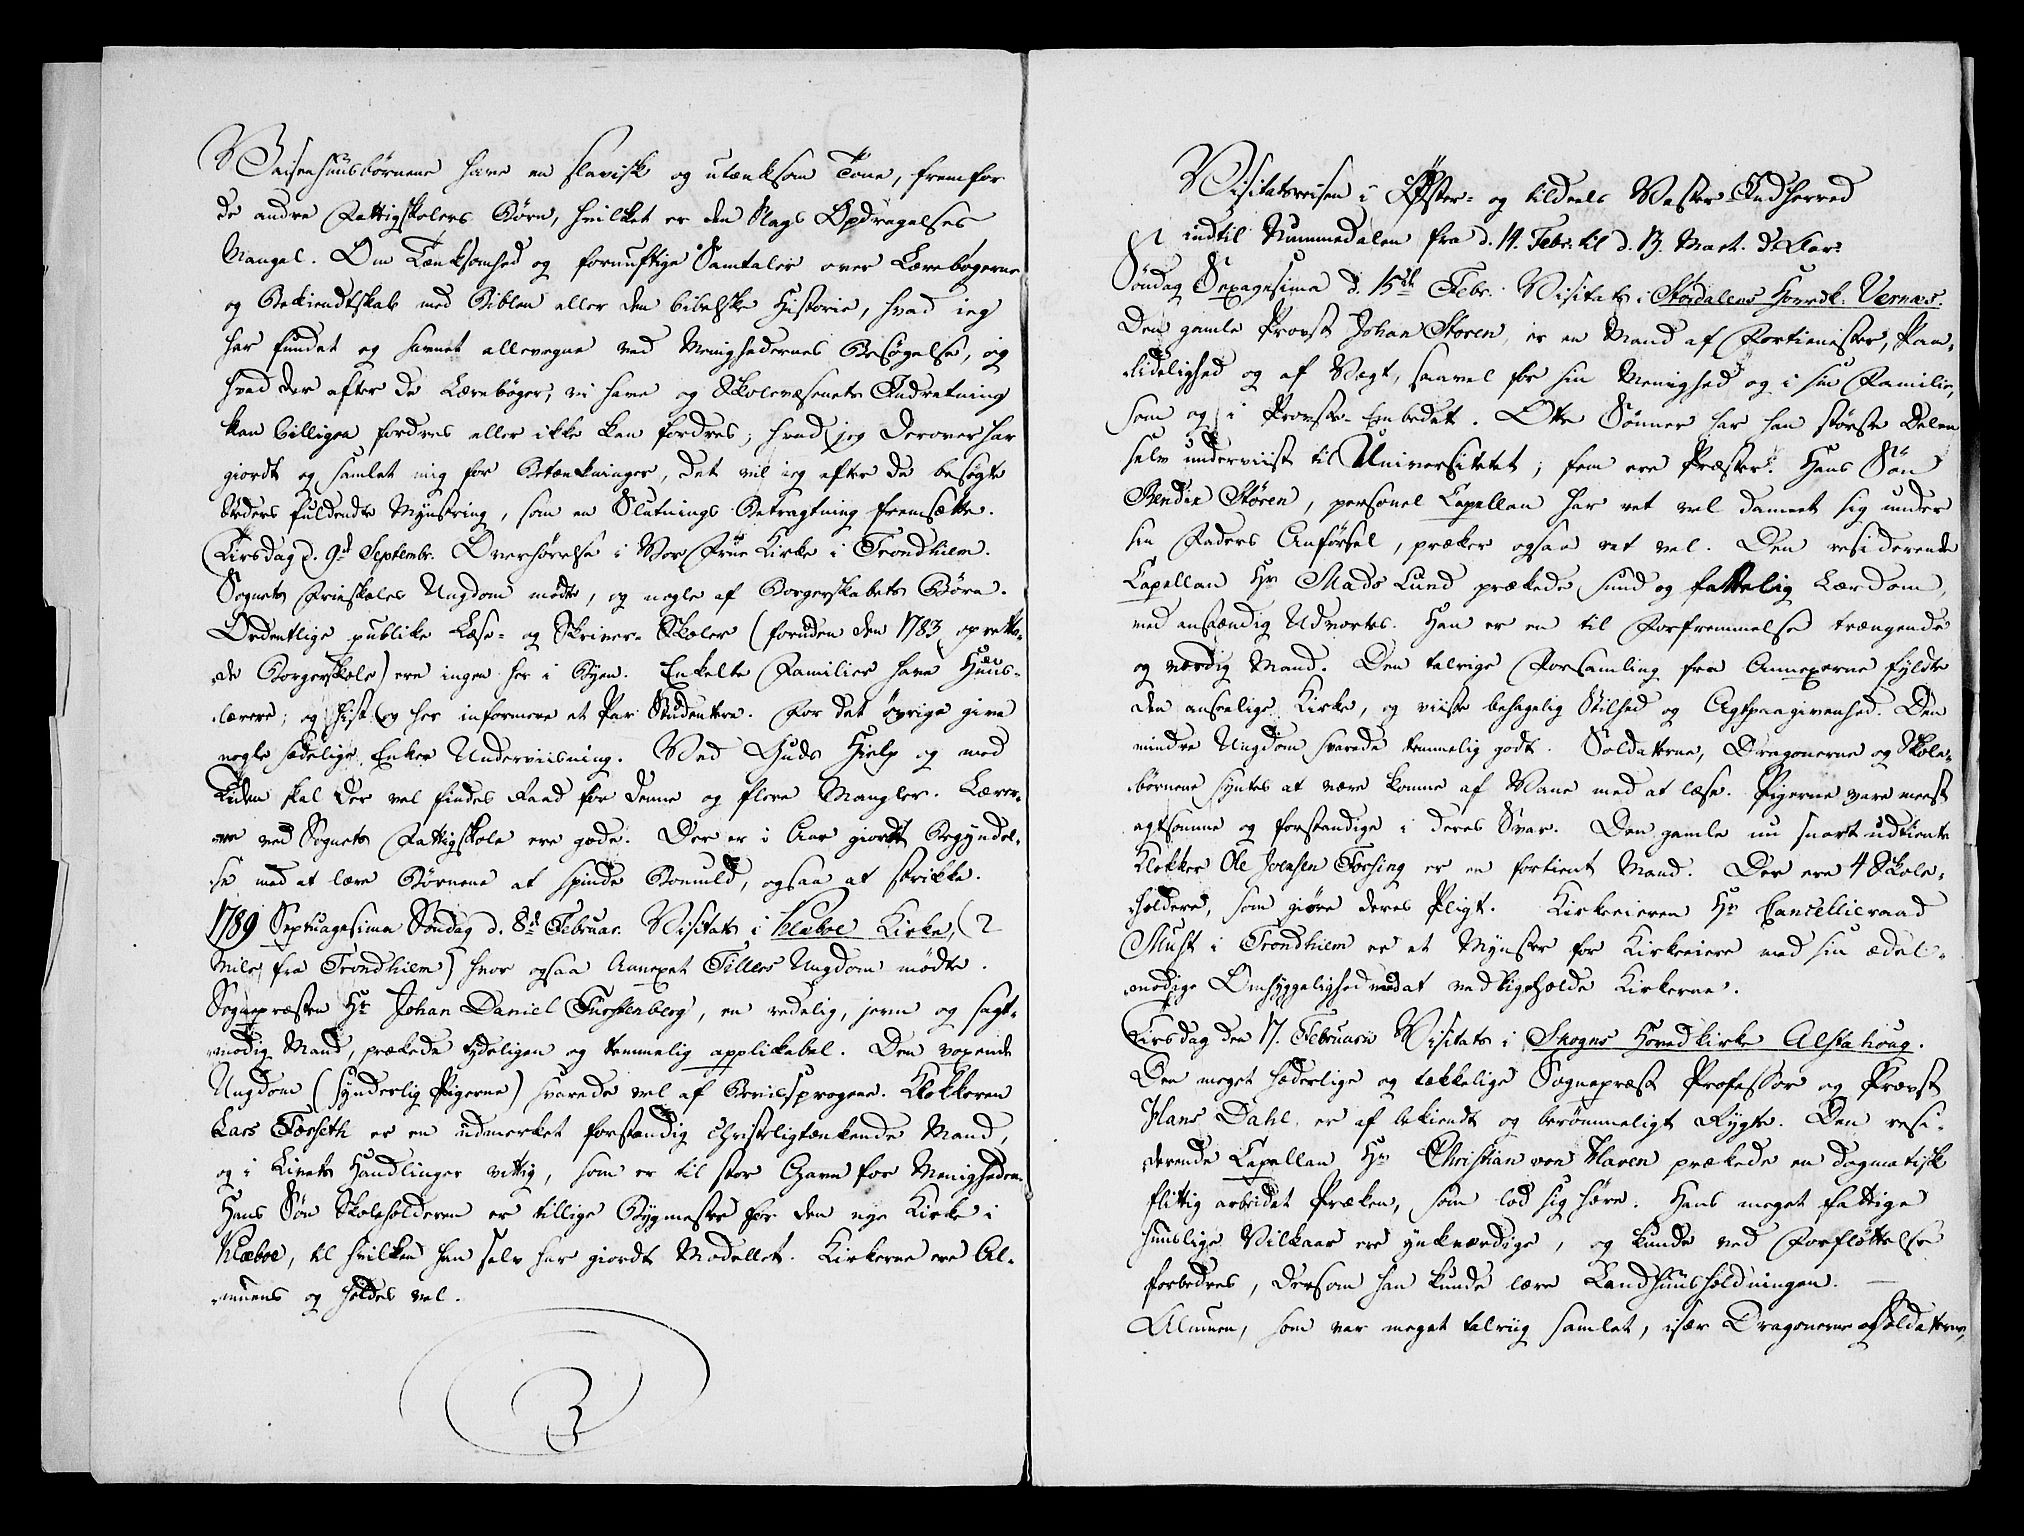 Waisenhuusbørnene have en slavisk og utænksom Tone, fremfor
de andre Fattigskolers Børn, hvilket er den Slags Opdragelses
Mangel. Om Tænksomhed og fornuftige Samtaler over Lærebøgerne
og Bekiendtskab med Biblen eller den bibelske Historie, hvad ieg
har fundet og savnet allevegne ved Menighedernes Besøgelse, og
hvad der efter de Lærebøger, vi have og Skolevæsenets Indretning
kan billigen fordres eller ikke kan fordres, hvad jeg derover har
giordt og samlet mig for Betænkninger, det vil ieg efter de besøgte
Steders fuldendte Mynstring, som en Slutnings-Betragtning fremsætte.
Tirsdag d. 9d Septembr. Overhørelse i Vor Frue Kirke i Trondhiem.
Sognets Frieskoles Ungdom mødte, og nogle af Borgerskabets Børn.
Ordentlige publike Læse- og Skriver-Skoler (foruden den 1783 oprette-
de Borgerskole) ere ingen her i Byen. Enkelte Familier have Huus-
lærere; og hist og her informere et Par Studentere. For det øvrige give
nogle sædelige Enker Underviisning. Ved Guds Hielp og med
Tiden skal der vel findes Raad for denne og flere Mangler. Lærer-
ne ved Sognets Fattigskole ere gode. Der er i Aar giordt Begyndel-
se med at lære Børnene at spinde Bomuld, ogsaa at strikke.
1789 Septuagesima Søndag d. 8de Februar. Visitats i Klæboe Kirke, (2
Mile fra Trondhiem) hvor ogsaa Annexet Tillers Ungdom mødte.
Sognepræsten Hr Johan Daniel Turchenberg, en redelig, jevn og sagt-
modig Mand, prækede tydeligen og temmelig applicabel. Den voxende
Ungdom (synderlig Pigerne) svarede vel af Beviissprogene. Klokkeren
Lars Forseth er en udmerket forstandig christeligtænkende Mand,
og i Livets Handlinger vittig, som er til stor Gavn for Menigheden.
Hans Søn Skoleholderen er tillige Bygmester for den nye Kirke i
Klæboe, til hvilken han selv har giordt Modellet. Kirkerne ere Al-
muens og holdes vel.
Visitatsreisen i Øster- og tildeels Vester-Indherred
indtil Nummedalen fra d. 14. Febr. til d. 13. Mart. d. Aar:
Søndag Sexagesima d. 15de Febr. Visitats i Stordalens Hovedk. Vernæs.
Den gamle Provst Johan Støren, er en Mand af Fortienester, Paa-
lidelighed og af Vægt, saavel for sin Menighed og i sin Familie,
som og i Provste-Embedet. Otte Sønner har han største Delen
selv underviist til Universitetet; fem ere Præster. Hans Søn
Bendix Støren, personel Capellan har ret vel dannet sig under
sin Faders Anførsel, præker ogsaa ret vel. Den residerende
Capellan Hr Mads Lund prækede sund og fattelig Lærdom,
med anstændig Udvortes. Han er en til Forfremmelse trængende
og værdig Mand. Den talrige Forsamling fra Annexerne fyldte
den anseelige Kirke, og viiste behagelig Stilhed og Agtpaagivenhed. Den
mindre Ungdom svarede temmelig godt. Soldatterne, Dragonerne og Skole-
børnene syntes at være komne af Vane med at læse. Pigerne vare meest
agtsomme og forstandige i deres Svar. Den gamle nu snart udtiente
Klokker Ole Joensen Forsing er en fortient Mand. Der ere 4 Skole-
holdere, som giøre deres Pligt. Kirkeeieren Hr Cancellieraad
Must i Trondhiem er et Mynster for Kirkeeiere med sin ædel-
modige Omhyggelighed med at vedligeholde Kirkerne.
Tirsdag den 17. Februarii Visitats i Skogns Hovedkirke Alstahoug.
Den meget hæderlige og tækkelige Sognepræst Professor og Provst
Hans Dahl er af bekiendt og berømmeligt Rygte. Den resi-
derende Capellan Hr Christian von Haven prækede en dogmatisk
flittig arbeidet Præken, som lod sig høre. Hans meget fattige
huuslige Vilkaar ere ynkværdige, og kunde ved Forflöttelse
forbedres, dersom han kunde lære Landhuusholdningen. —
Almuen, som var meget talrig samlet, især Dragonerne og Soldatterne,